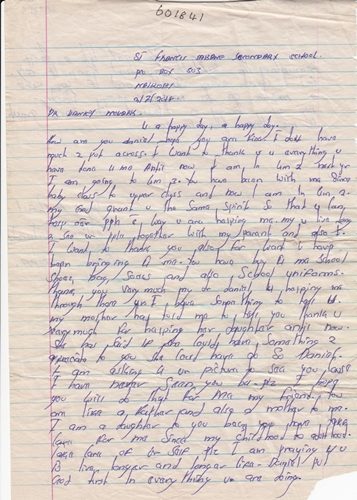 601841
ST FRANCIS SECONDARY SCHOOL.
PO BOX 503
2/7/2018
Dr DANNY
a happy day, a happy day
How are you daniel hope you am fine. I dont have
much 2 put across. I want to thank 4 u everything u
have done 4 me Until now I am in 2 next yr
I am going to 2. You have been with me since
baby class to upper class and now I am in 2.
my God Grant u the same Spirit So that u can
help other pple the way u are helping me. my u live long
to see us together with my parent and also I.
I want to thank you also for want u have
been bringing 4 me. You have buy 4 me School
Shoes, bag, Socks and also School uniforms.
thank you very much my dr daniel 4 helping me
through there yrs I have Something to tell u.
my mother has told me to tell you thank u
very much for helping her daughter until now.
She has said if she could have something 2
appreciate to you she could have do so Daniel.
I am asking 4 ur picture to see you cause
I have never Seen you be. plz I hope
you will do that for me my friend. You
are like a father and also a mother to me.
I am a daughter to you because you have take
care for me Since my childhood to adulthood.
take care of ur Self plz I am praying 4 u
to live longer and longer like Daniel put
God first in everything we are doing.